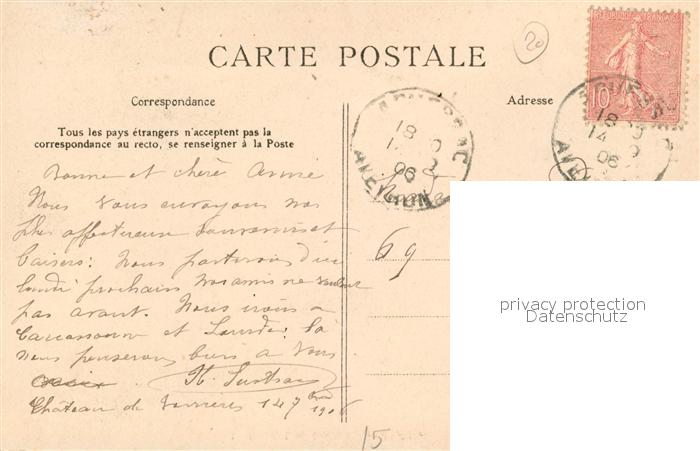 20
CARTE POSTALE
REPUBLIQUE FRANÇAISE
10
Correspondance
Adresse
Tous les pays étrangers n'acceptent pas la
correspondance au recto, se renseigner à la Poste
18
14 9
06
AVEYRON
18
14 9
06
Bonne et chère Amie
Nous vous envoyons nos
plus affectueux souvenirs et
baisers: Nous partirons d'ici
lundi prochain nos amis ne veulent
pas avant. Nous irons a
Carcassonne et Lourdes: là
nous penserons bien a vous
Château de 14 7bre 1906
69
15
privacy protection
Datenschutz